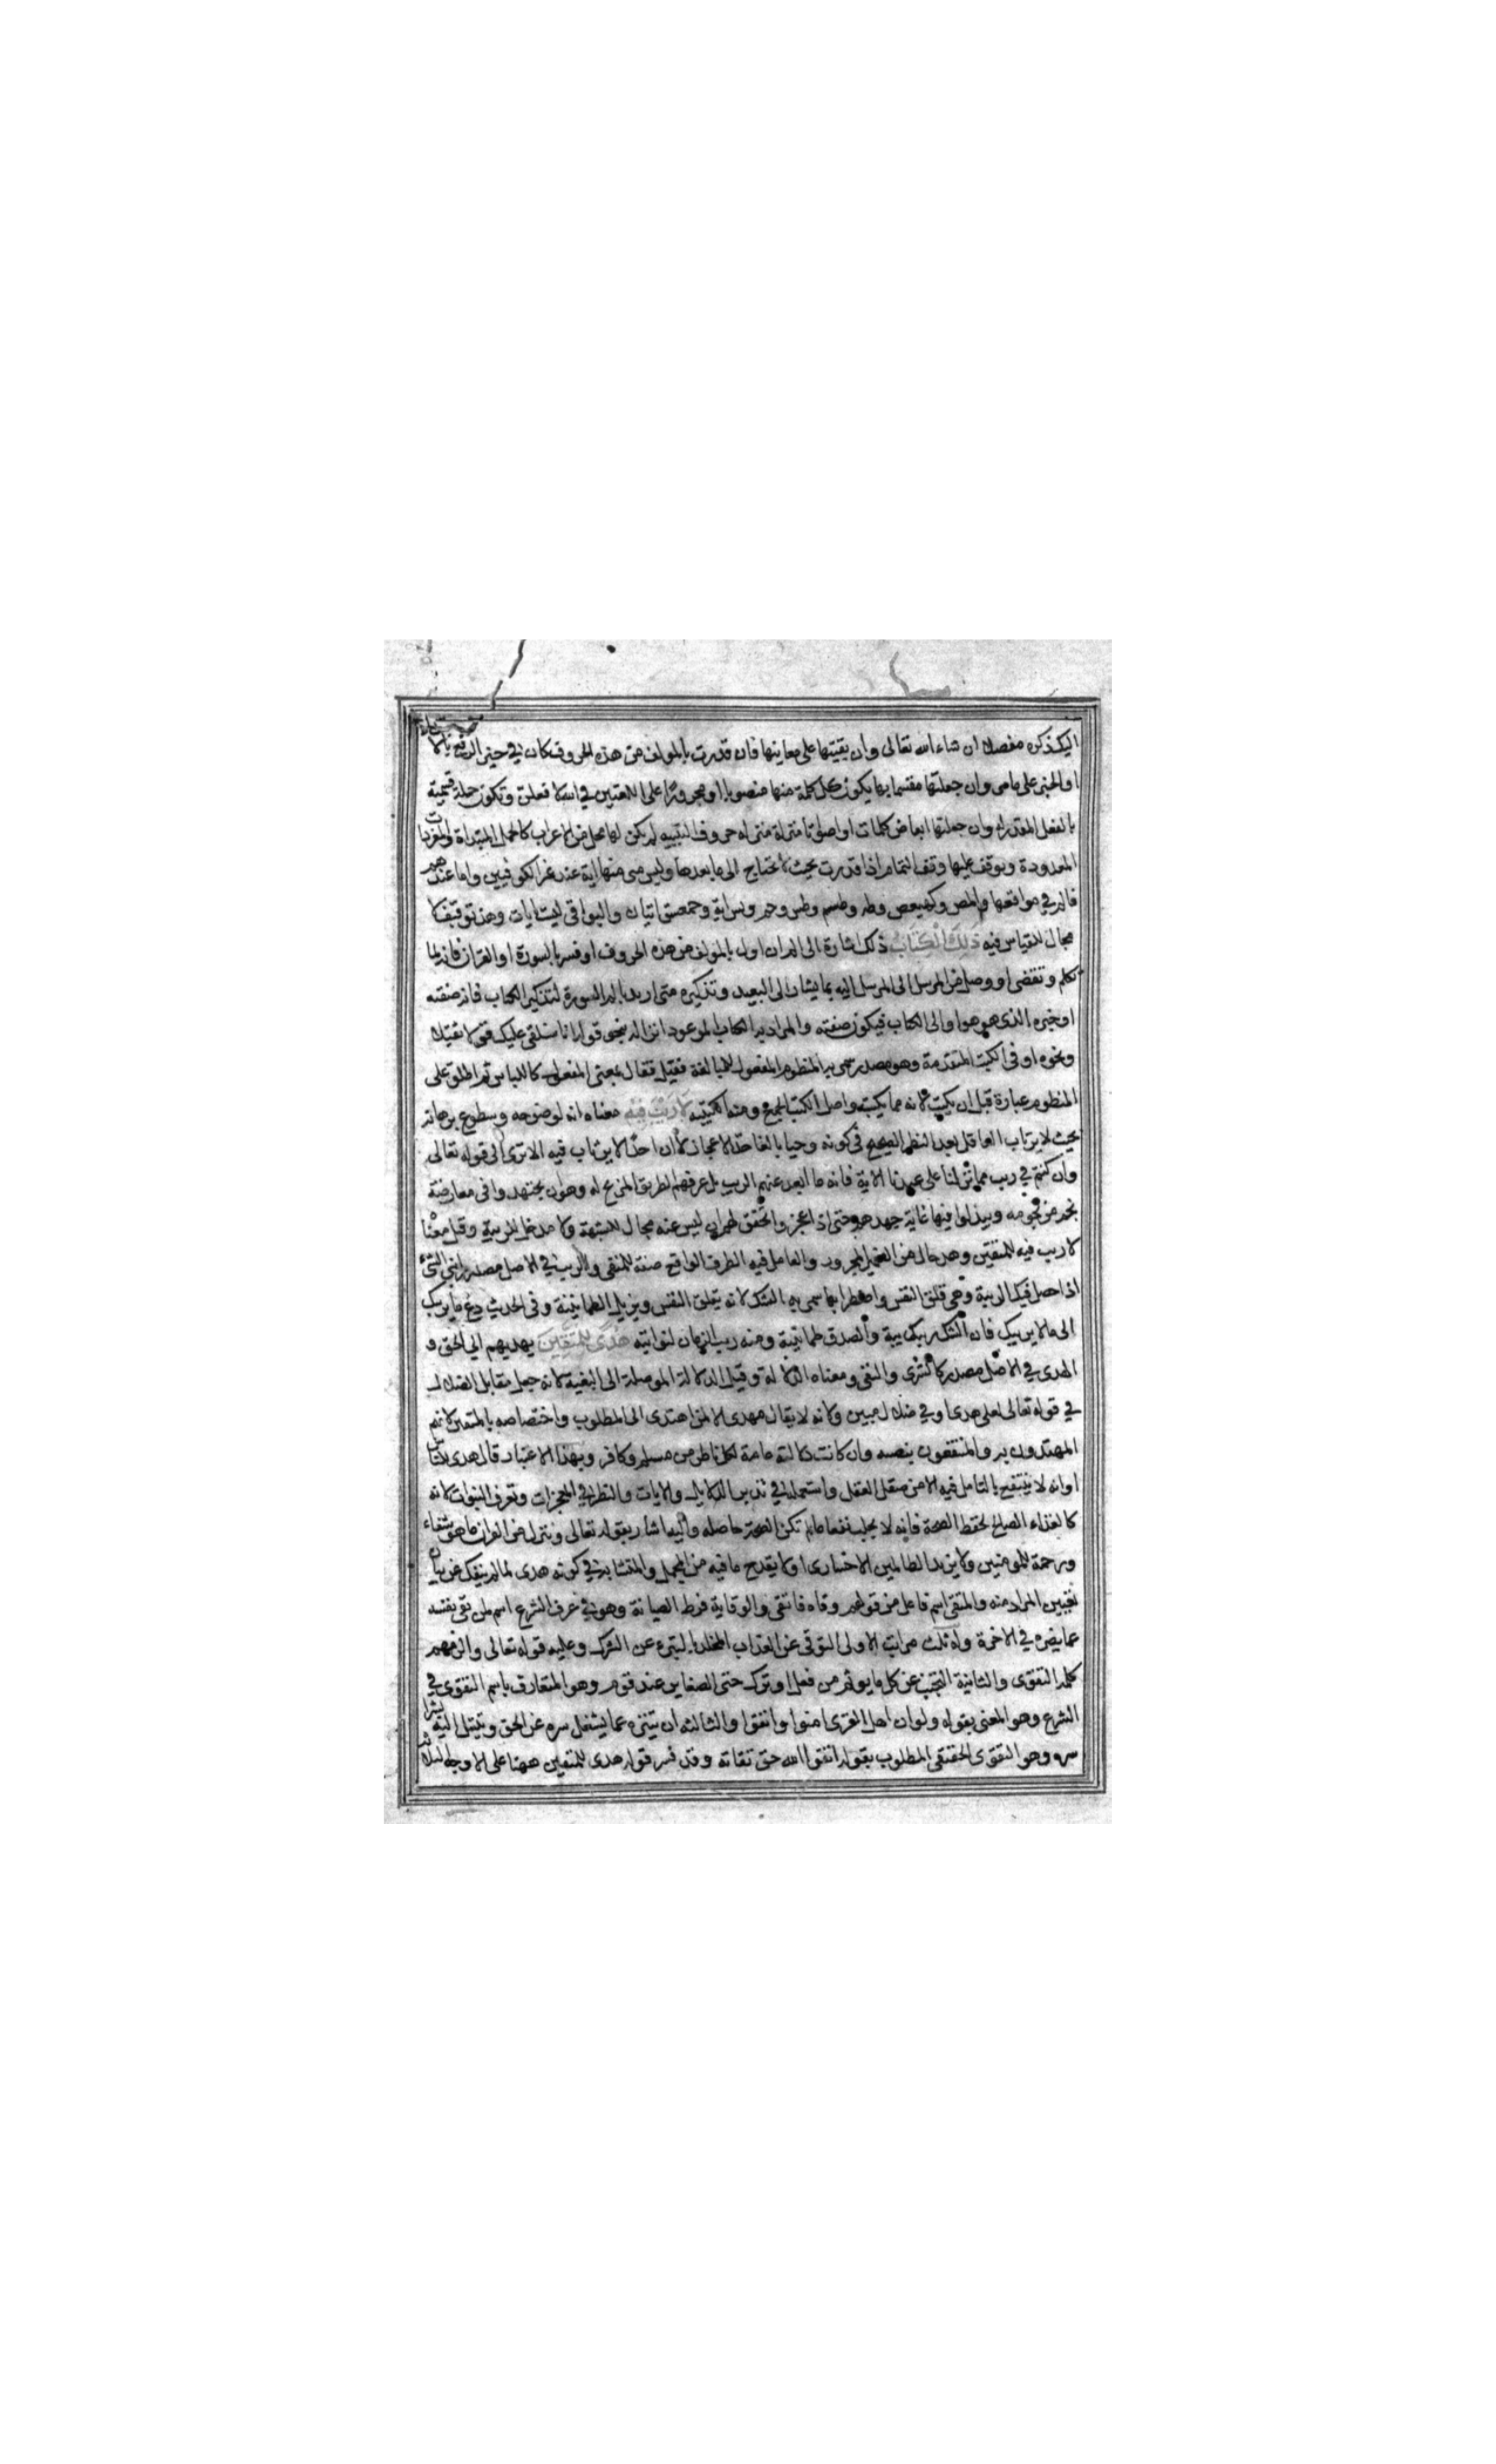 اليك ذكره مفصلا ان شاء الله تعالى وان بقيتها على معانيها فان قدرت بالمولف من هذه الحروف كان في حيز الرفع بالا
او الخبر على ما مر وان جعلتها مقسما بها يكون كل كلمة منها منصوبا او مجرورا على اللغتين في الله لا فعلن وتكون جملة قسمية
بالفعل المقدر له وان جعلتها ابعاض كلمات او اصواتا منزلة منزلة حروف التنبيه لم يكن لها محل من الاعراب كالجمل المبتداة والمفردات
المعدودة ويوقف عليها وقف التمام اذا قدرت بحيث لا تحتاج الى ما بعدها وليس شى منها اية عند غير الكوفيين واما عندهم
فالم في مواقعها والمص وكهيعص وطه وطسم وطس وحم ويس اية وحمعسق ايتان والبواقى ليست ايات وهذا توقيف لا
مجال للقياس فيه ذَلِكَ الْكِتَابُ ذلك اشارة الى الم ان اول بالمولف من هذه الحروف او فسر بالسورة او القران فانه لما
تكلم وتقضى او وصل من المرسل الى المرسل اليه بما يشار الى البعيد وتذكيره متى اريد بالم السورة لتذكير الكتاب فانه صفته
او خبره الذى هو هو او الى الكتاب فيكون صفته والمراد به الكتاب الموعود انزاله بنحو قوله انا سنلقى عليك قولا ثقيلا
ونحوه او فى الكتب المتقدمة وهو مصدر سمى به المنظوم المفعول للمبالغة فقيل فعال بمعنى المفعول كاللباس ثم اطلق على
المنظوم عبارة قبل ان يكتب لانه مما يكتب واصل الكتب الجمع ومنه الكتيبه لَا رَيْبَ فِيْهِ معناه انه لوضوحه وسطوع برهانه
بحيث لا يرتاب العاقل بعد النظر الصحيح فى كونه وحيا بالغا حد الاعجاز لا ان احدا لا يرتاب فيه الا ترى الى قوله تعالى
وان كنتم في ريب مما نزلنا على عبدنا الاية فانه ما ابعد عنهم الريب بل عرفهم الطريق المزيح له وهو ان يجتهدوا فى معارضة
نجم من نجومه ويبذلوا فيها غاية جهدهم حتى اذا عجزوا تحقق لهم ان ليس عنه مجال للشبهة ولا مدخل للريبة وقيل معناه
لا ريب فيه للمتقين وهدى حال من الضمير المجرور والعامل فيه الظرف الواقع صفة للمنفى والريب في الاصل مصدر رابنى الشئ
اذا حصل فيك الريبة وهى قلق النفس واضطرابها سمى به الشك لانه يقلق النفس ويزيل الطمانينة وفى الحديث دع ما يريبك
الى ما لا يريبك فان الشك ريبة والصدق طمانينة ومنه ريب الزمان لنوايبه هُدًى لِلْمُتَّقِينَ يهديهم الى الحق و
الهدى في الاصل مصدر كالسرى والتقى ومعناه الدلالة وقيل الدلالة الموصلة الى البغية لانه جعل مقابل الضلال
في قوله تعالى لعلى هدى او في ضلال مبين ولانه لا يقال مهدى الا لمن اهتدى الى المطلوب واختصاصه بالمتقين لانهم
المهتدون به والمنتفعون بنصبه وان كانت دلالته عامة لكل ناظر من مسلم وكافر وبهذا الاعتبار قال هدى للناس
او انه لا ينتفع بالتامل فيه الا من صقل العقل واستعمله في تدبر الدلايل والايات والنظر في المعجزات وتعرف النبوات لانه
كالغذاء الصالح لحفظ الصحة فانه لا يجلب نفعا ما لم تكن الصحة حاصله واليه اشار بقوله تعالى وننزل من القران ما هو شفاء
ورحمة للمومنين ولا يزيد الظالمين الا خسارا ولا يقدح ما فيه من المجمل والمتشابه في كونه هدى لما لم ينفك عن بيان
تعيين المراد منه والمتقى اسم فاعل من قولهم وقاه فاتقى والوقاية فرط الصيانة وهو في عرف الشرع اسم لمن يقى نفسه
عما يضره في الاخرة وله ثلث مراتب الاولى التوقى عن العذاب المخلد بالتبرء عن الشرك وعليه قوله تعالى والزمهم
كلمة التقوى والثانية التجنب عن كل ما يوثم من فعل او ترك حتى الصغاير عند قوم وهو المتعارف باسم التقوى في
الشرع وهو المعنى بقوله ولو ان اهل القرى امنوا واتقوا والثالثة ان يتنزه عما يشغل سره عن الحق ويتبتل اليه بشرا
شره وهو التقوى الحقيقى المطلوب بقوله اتقوا الله حق تقاته وقد فسر قوله هدى للمتقين ههنا على الاوجه الثلاثة